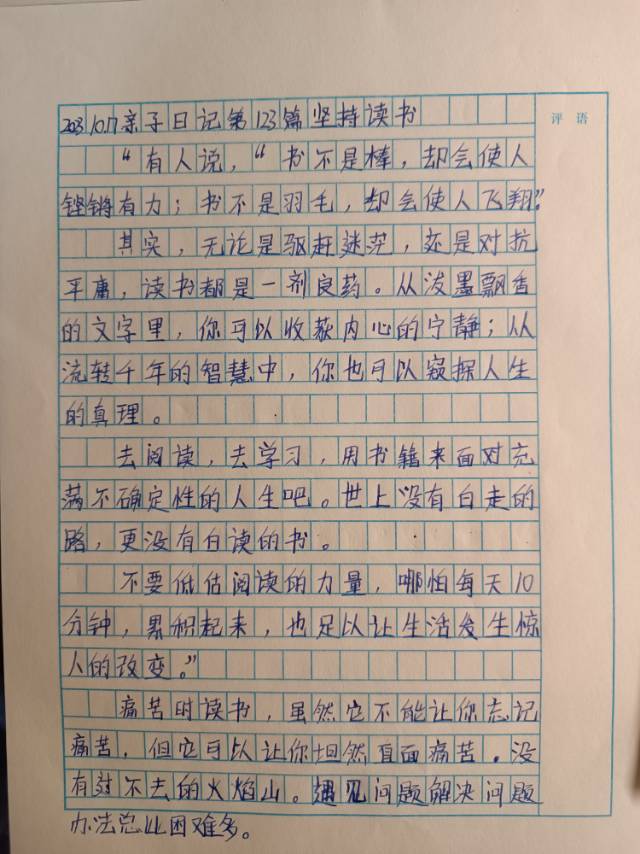 2023 10.17亲子日记第123篇坚持读书
评语
“有人说，“书不是棒，却会使人
铿锵有力；书不是羽毛，却会使人飞翔”。
其实，无论是驱赶迷茫，还是对抗
平庸，读书都是一剂良药。从泼墨飘香
的文字里，你可以收获内心的宁静；从
流转千年的智慧中，你也可以窥探人生
的真理。
去阅读，去学习，用书籍来面对充
满不确定性的人生吧。世上没有白走的
路，更没有白读的书。
不要低估阅读的力量，哪怕每天10
分钟，累积起来，也足以让生活发生惊
人的改变。”
痛苦时读书，虽然它不能让你忘记
痛苦，但它可以让你坦然直面痛苦。没
有过不去的火焰山。遇见问题解决问题
办法总比困难多。